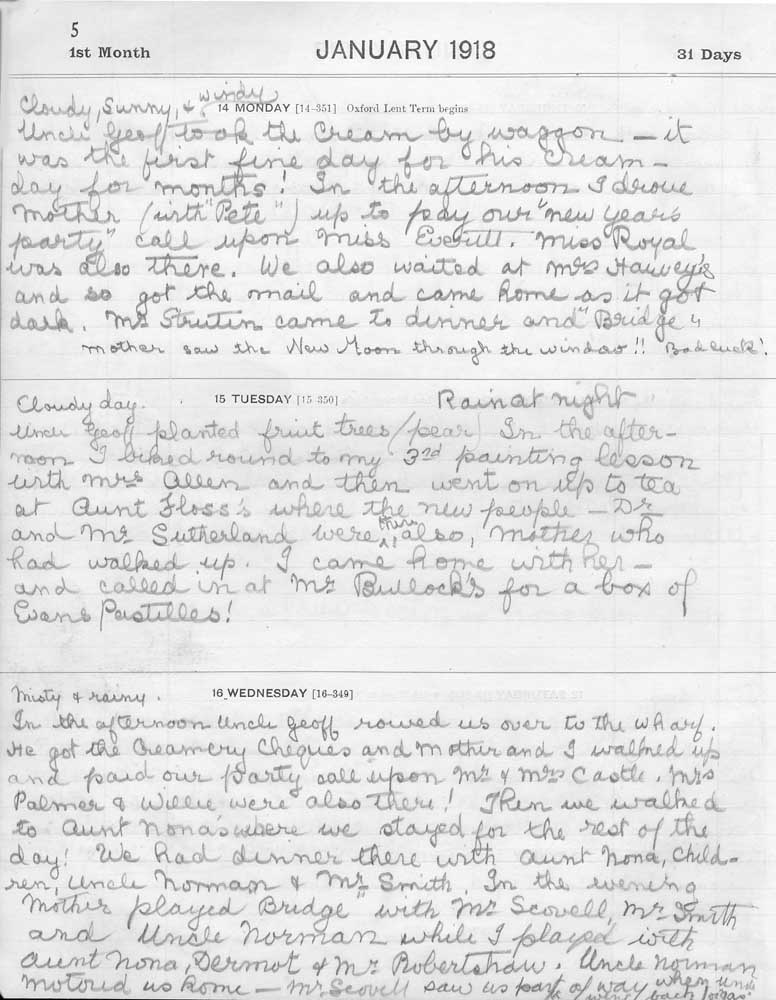 5
1st Month JANUARY 1918 31 Days
Cloudy, Sunny, & windy 14 MONDAY [14-351] Oxford Lent Term begins
Uncle Geoff took the Cream by waggon — it
was the first fine day for his cream-
day for months! In the afternoon I drove
Mother (with "Pete") up to pay our "new years
party" call upon Miss Everitt. Miss Royal
was also there. We also waited at Mrs Harvey's
and so got the mail and came home as it got
dark. Mr Strutin came to dinner and "Bridge"
Mother saw the New Moon through the window!! Bad luck!
Cloudy day. 15 TUESDAY [15-350] Rain at night
Uncle Geoff planted fruit trees (pear) In the after-
noon I biked round to my 3rd painting lesson
with Mrs Allen and then went on up to tea
at Aunt Floss's where the new people — Dr
and Mrs Sutherland were there also, Mother who
had walked up. I came home with her —
and called in at Mr Bullock's for a box of
Evans Pastilles!
Misty & rainy. 16 WEDNESDAY [16-349]
In the afternoon Uncle Geoff rowed us over to the wharf.
He got the Creamery Cheques and Mother and I walked up
and paid our party call upon Mr & Mrs Castle. Mrs
Palmer & Willie were also there! Then we walked
to Aunt Nona's where we stayed for the rest of the
day! We had dinner there with Aunt Nona, Child-
ren, Uncle Norman & Mr Smith. In the evening
Mother played "Bridge" with Mr Scovell, Mr Smith
and Uncle Norman while I played with
Aunt Nona, Dermot & Mr Robertshaw. Uncle Norman
motored us home — Mr Scovell saw us part of way when